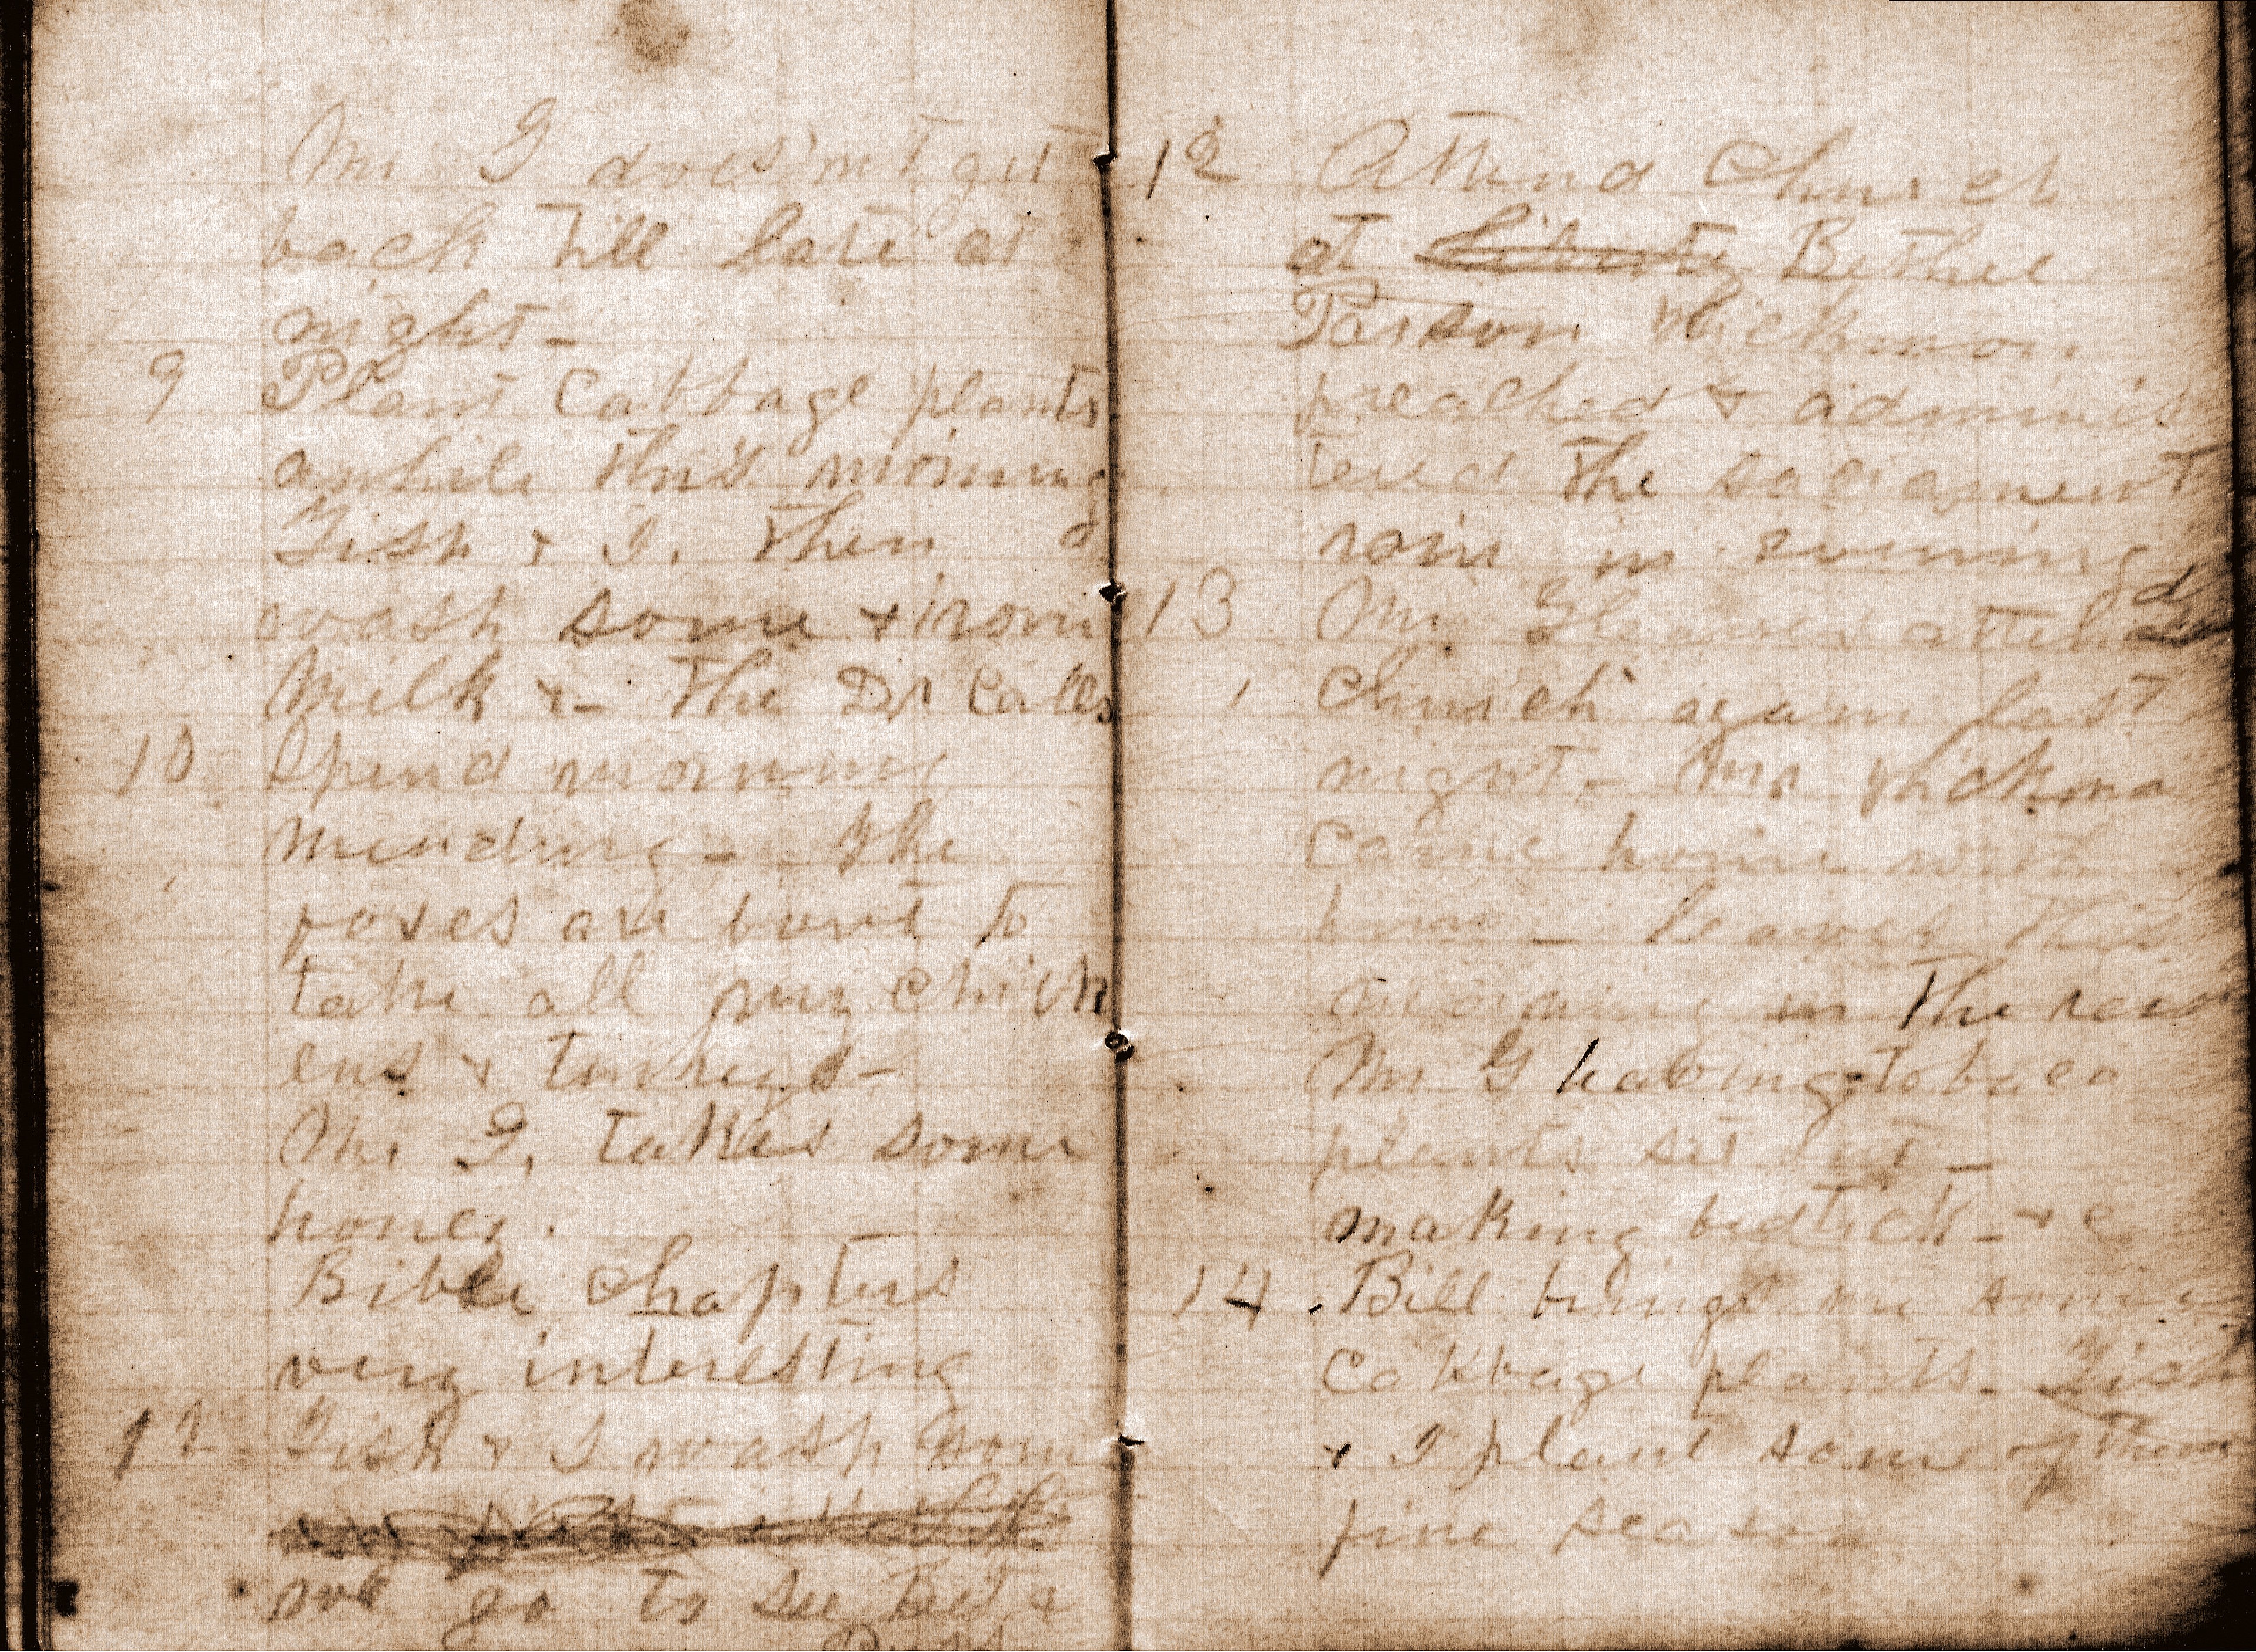 Mr G does'nt get
back till late at
night_
9 Plant Cabbage plants
awhile this morning
Tish & I. then
wash some & iron
Milk &_ The Dr Calls
10 Spend morning
mending_ The
foxes are bound to
take all my chick
ens & turkeys_
Mr G, takes some
honey.
Bible Chapters
very interesting
Tish & I wash som
we go to see &
12 Attend Church
at Liberty Bethel
Parson Hickman
preached & adminis
tered the sacrament
rain in evening
13 Mr Gleaves attend
Church again last
night_ Mr Hickma
came home with
him_ leaves this
morning in the rain
Mr G having tobaco
plants set out_
making bedtick_ &c
14 Bill brings me some
Cabbage plants_ Tish
& I plant some of them
fine season